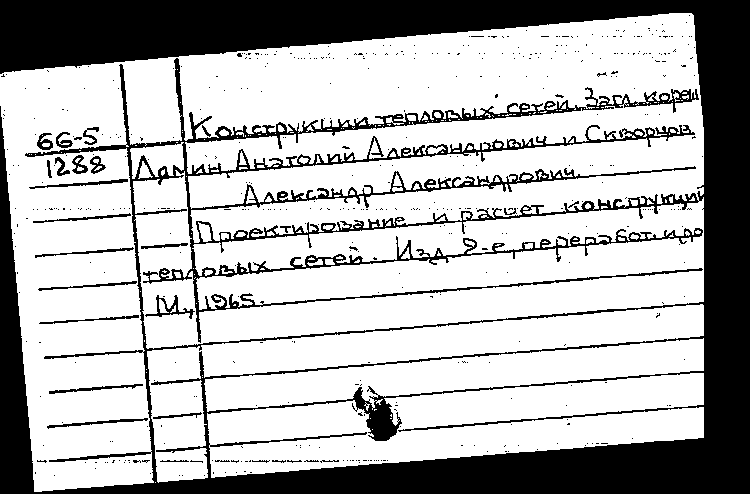 Конструкции тепловых сетей. Загл. кореш
66-5
1288 Лямин, Анатолий Александрович и Скворцов,
Александр Александрович.
Проектирование и расчет конструкций
тепловых сетей. Изд. 2-е, переработ. и до
М., 1965.